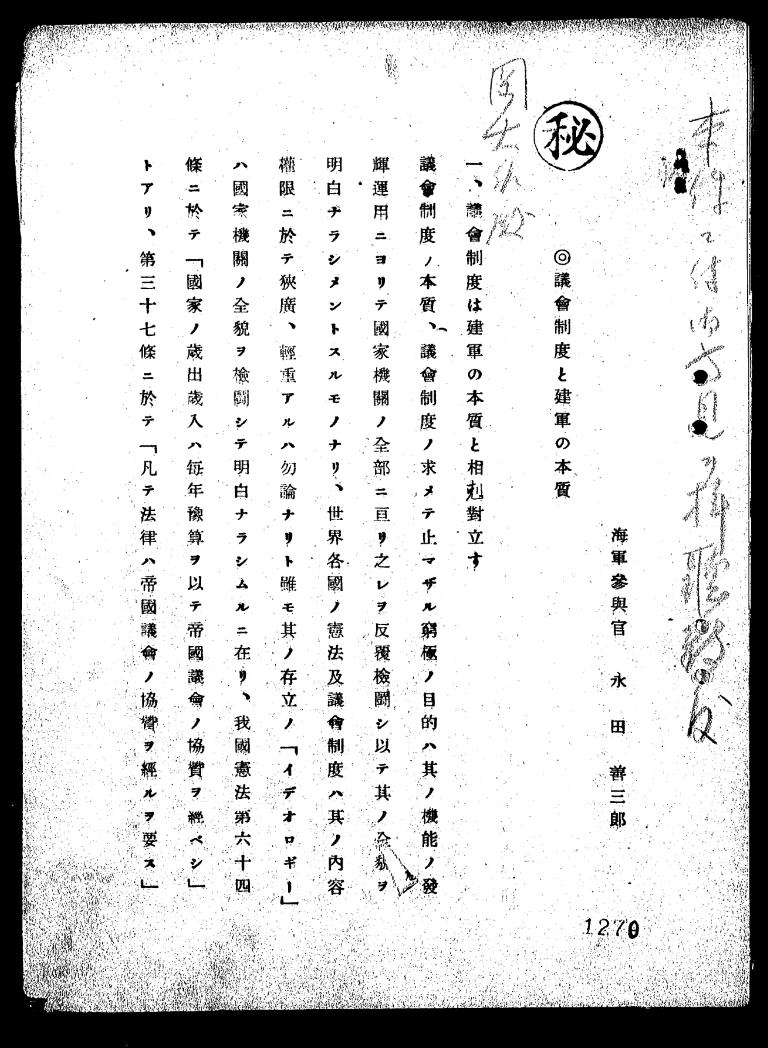 秘
◎議會制度と建軍の本質
海軍參與官 永田善三郎
一、議會制度は建軍の本質と相剋對立す
議會制度ノ本質、議會制度ノ求メテ止マザル窮極ノ目的ハ其ノ機能ノ發
輝運用ニヨリテ國家機關ノ全部ニ亘リ之レヲ反覆檢鬪シ以テ其ノ全貌ヲ
明白ナラシメントスルモノナリ、世界各國ノ憲法及議會制度ハ其ノ內容
權限ニ於テ狹廣、輕重アルハ勿論ナリト雖モ其ノ存立ノ「イデオロギー」
ハ國家機關ノ全貌ヲ檢鬪シテ明白ナラシムルニ在リ、我國憲法第六十四
條ニ於テ「國家ノ歲出歲入ハ每年豫算ヲ以テ帝國議會ノ協贊ヲ經ベシ」
トアリ、第三十七條ニ於テ「凡テ法律ハ帝國議會ノ協贊ヲ經ルヲ要ス」
1270